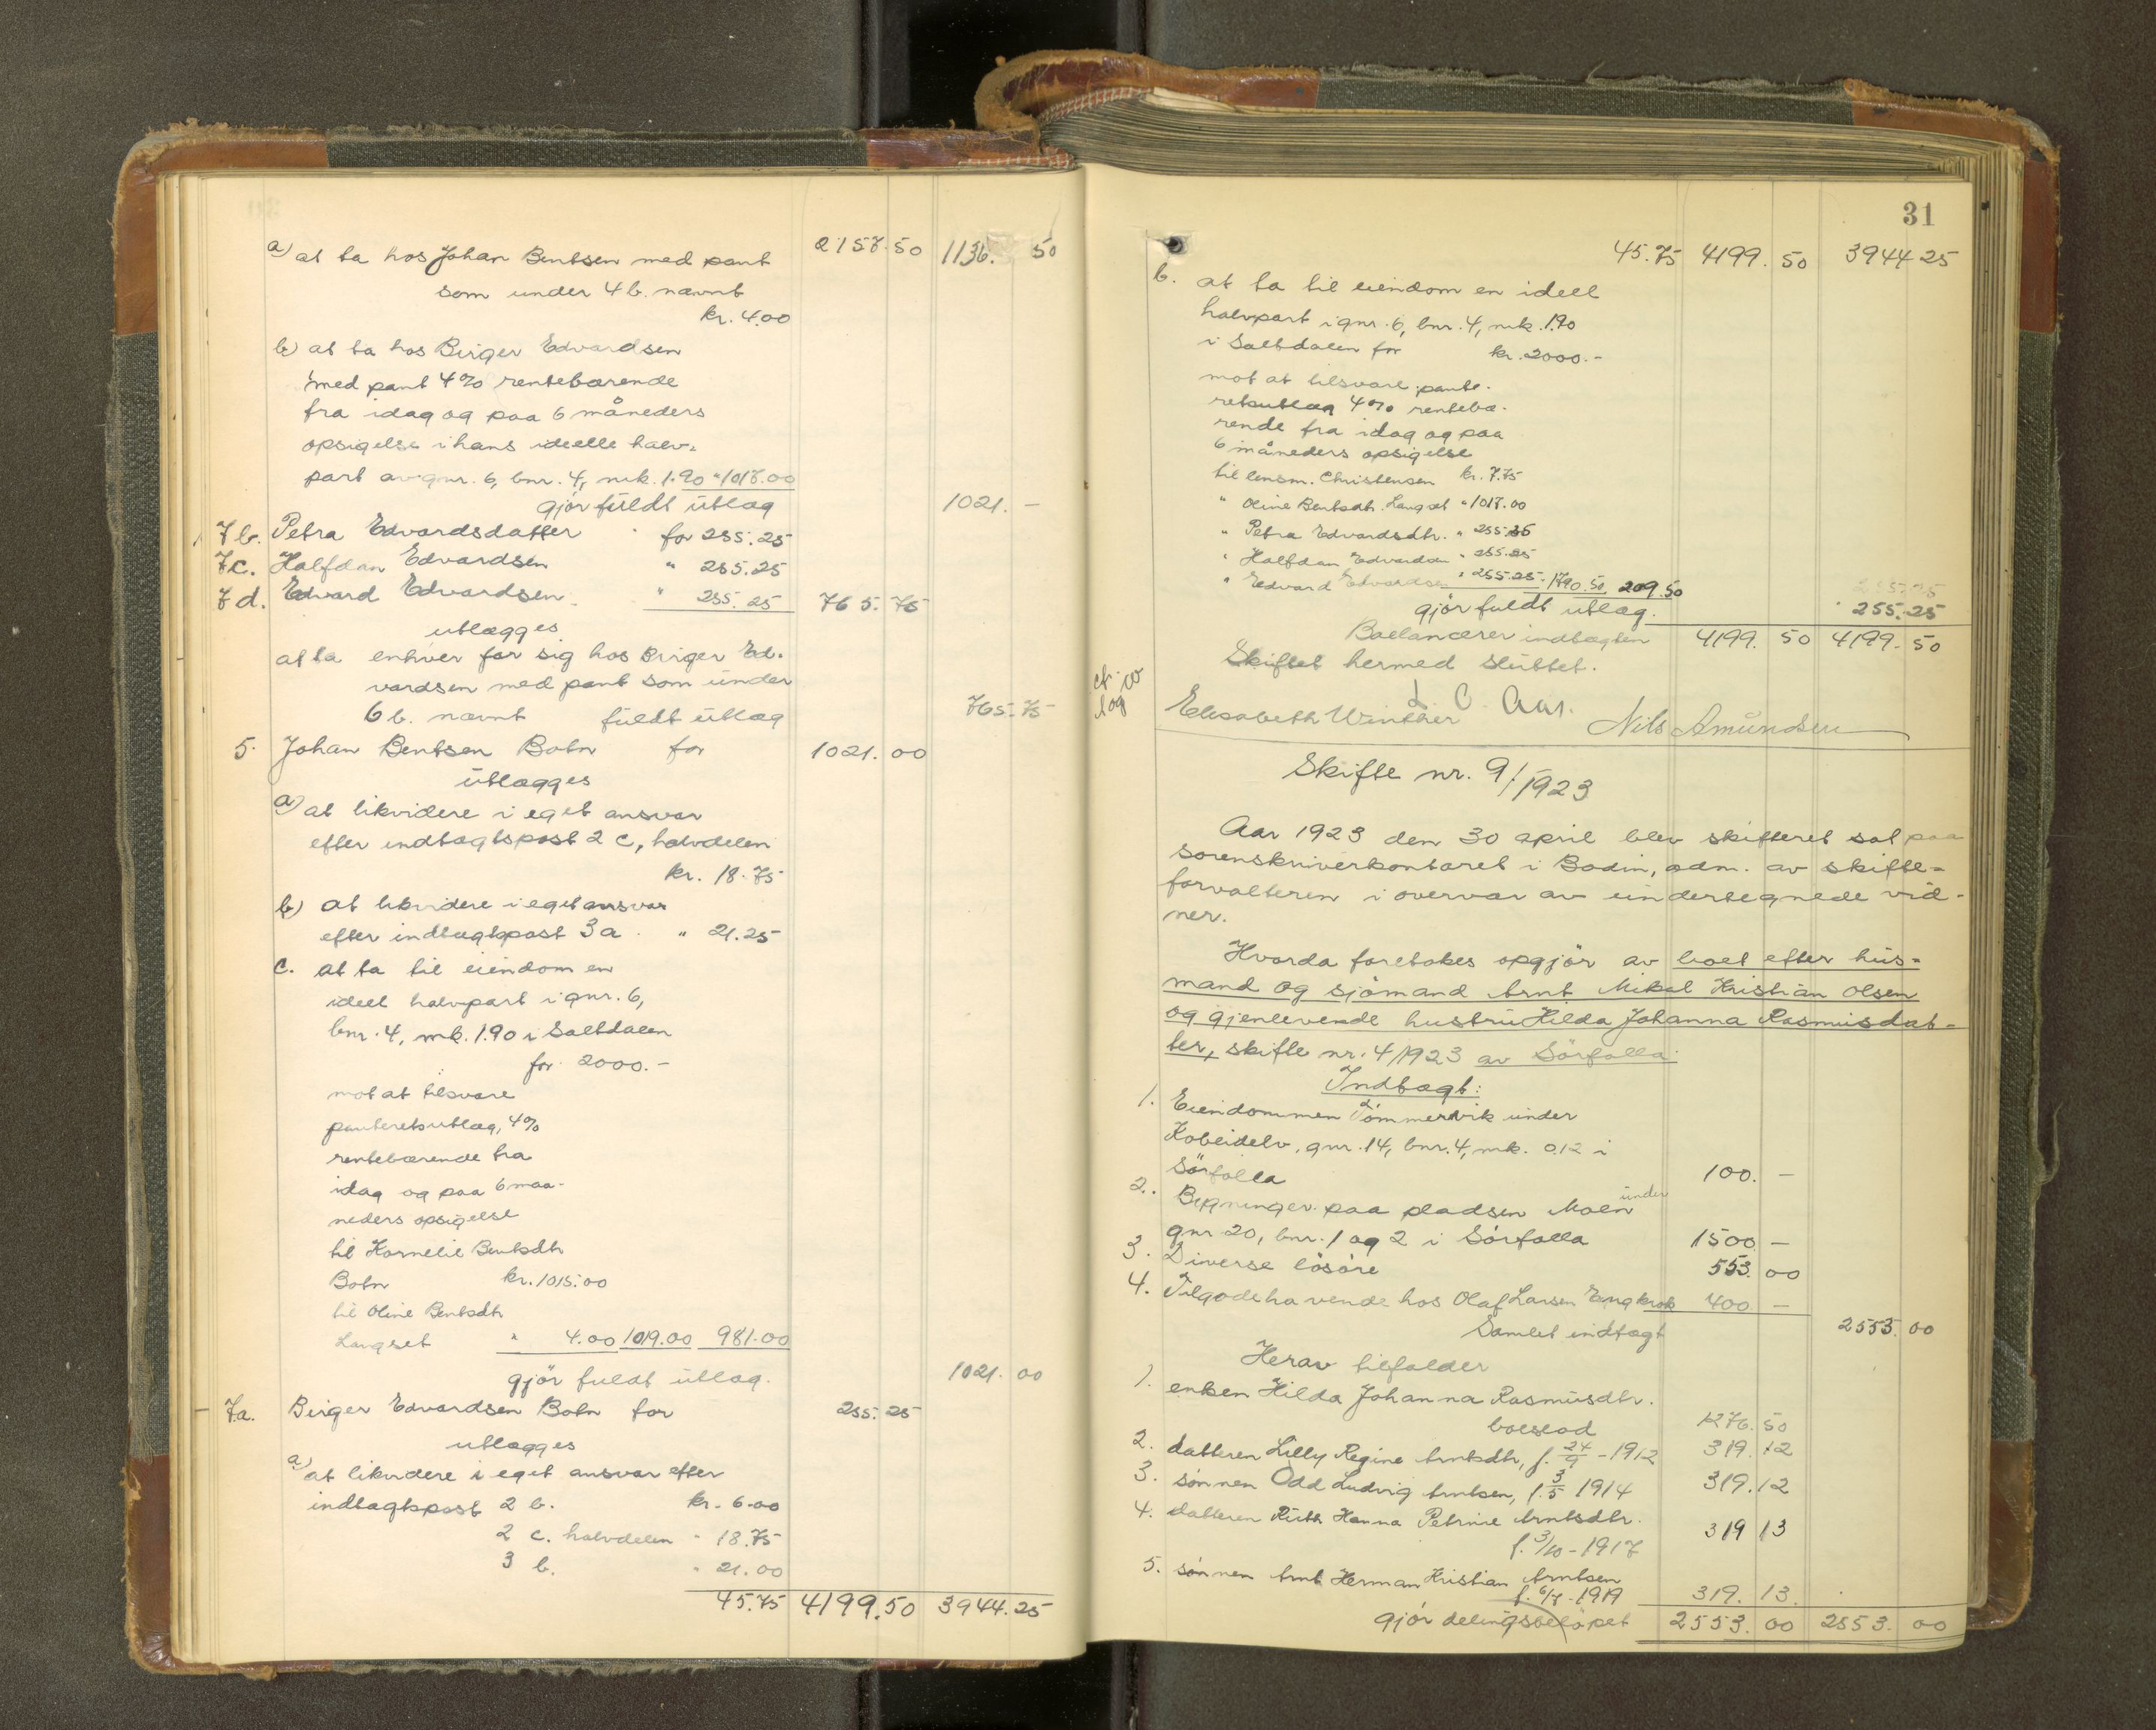 a) at ta hos Johan Bentsen med pant 2157.50 1136. 50
som under 4 b. nævnt
kr. 4.00
b) at ta hos Birger Edvardsen
med pant 4% rentebærende
fra idag og paa 6 måneders
opsigelse i hans ideelle halv-
part av gnr. 6, bnr. 4, mrk. 1.90 " 1017.00
gjør fuldt utlæg 1021. -
7 b. Petra Edvardsdatter for 255.25
7 c. Halfdan Edvardsen " 255.25
7 d. Edvard Edvardsen " 255.25 765.75
utlægges
at ta enhver for sig hos Birger Ed-
vardsen med pant som under
6 b. nævnt fuldt utlæg 765.75
5. Johan Bentsen Botn for 1021.00
utlægges
a) at likvidere i eget ansvar
efter indtægtspost 2 c, halvdelen
kr. 18.75
b) at likvidere i eget ansvar
efter indtægtspost 3 a. " 21.25
c. at ta til eiendom en
ideel halvpart i gnr. 6,
bnr. 4, mrk. 1.90 i Saltdalen
for 2000.-
mot at tilsvare
panteretsutlæg, 4%
rentebærende fra
idag og paa 6 maa-
neders opsigelse
til Kornelie Bentsdtr
Botn kr. 1015.00
til Oline Bentsdtr
Langset " 4.00 1019.00 981.00
gjør fuldt utlæg. 1021. 00
- 7a. Birger Edvardsen Botn for 255.25
utlægges
a) at likvidere i eget ansvar efter
indtægtspost 2 b. kr. 6.00
2 c. halvdelen " 18.75
3 b. " 21.00
45.75 4199.50 3944.25
31
45.75 4199.50 3944 25
b. at ta til eiendom en ideel
halvpart i gnr. 6, bnr. 4, mrk. 1.90
i Saltdalen for kr. 2000.-
mot at tilsvare pante-
retsutlæg 4% rentebæ-
rende fra idag og paa
6 måneders opsigelse
til lensm. Christensen kr. 7.75
" Oline Bentsdtr. Langset " 1017.00
" Petra Edvardsdtr. " 255.25
" Halfdan Edvardsen " 255.25
" Edvard Edvardsen " 255.25 - 1790.50 209.50
gjør fuldt utlæg. 255.25
Ballancerer indtægten 4199. 50 4199. 50
Skiftet hermed sluttet.
L. C. Aas.
Elisabeth Winther Nils Amundsen
Skifte nr. 9/1923
Aar 1923 den 30 april blev skifteret sat paa
sorenskriverkontoret i Bodin, adm. av skifte-
forvalteren i overvær av undertegnede vid-
ner.
Hvorda foretokes opgjør av boet efter hus-
mand og sjømand Arnt Mikal Kristian Olsen
og gjenlevende hustru Hilda Johanna Rasmusdat-
ter, skifte nr. 4/1923 av Sørfolla.
Indtægt:
1. Eiendommen Tømmervik under
Kobbelvelv, gnr. 14, bnr. 4, mrk. 0.12 i
Sørfolla 100. -
2. Bygninger paa pladsen Moen under
gnr 20, bnr. 1 og 2 i Sørfolla 1500 -
3. Diverse løsøre 553. 00
4. Tilgodehavende hos Olaf Larsen Engkrok 400 -
Samlet indtægt 2553. 00
Herav tilfalder
1. enken Hilda Johanna Rasmusdtr.
boeslod 1276. 50
2. datteren Lilly Regine Arntsdtr, f. 24/9 - 1912 319. 12
3. sønnen Odd Ludvig Arntsen, f. 3/5 1914 319. 12
4. datteren Ruth Hanna Petrine Arntsdtr.
f. 3/10 - 1917 319 13
5. sønnen Arnt Herman Kristian Arntsen
f. 6/7 - 1919 319. 13.
gjør delingsbeløpet 2553. 00 2553. 00